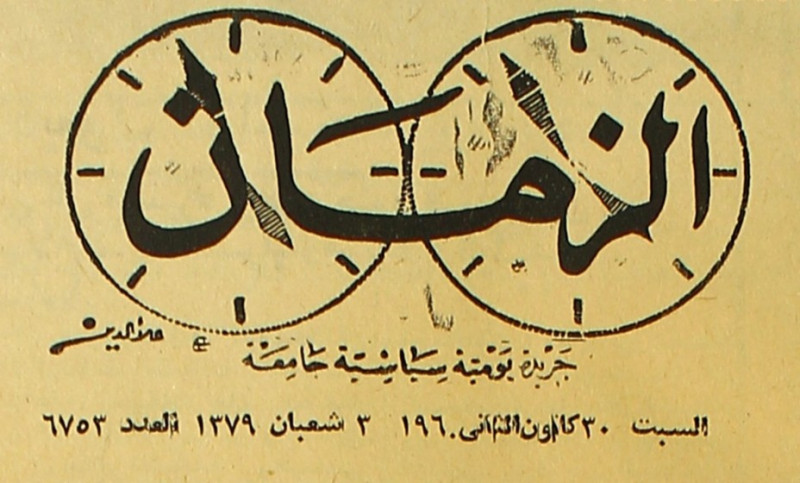 الزمان
علاء الدين
جريدة يومية سياسية جامعة
السبت ٣٠ كانون الثاني ١٩٦٠ ٣ شعبان ١٣٧٩ العدد ٦٧٥٣